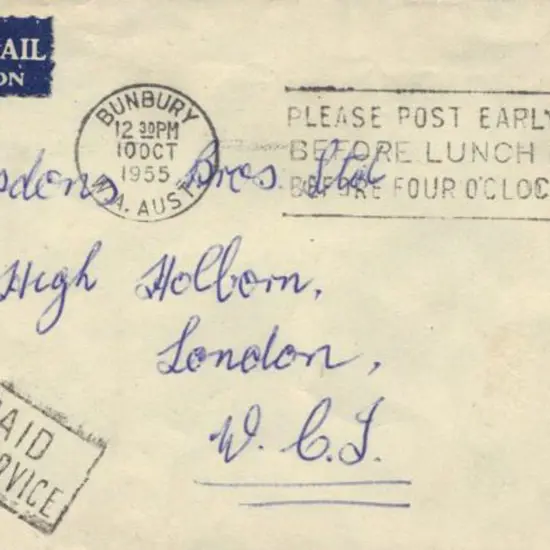 AIL
ON
BUNBURY
12 30PM
10 OCT
1955
W.A. AUST
PLEASE POST EARLY
BEFORE LUNCH
BEFORE FOUR O'CLOC
sdens Bros. Ltd
High Holborn,
London,
W. C. I.
AID
RVICE